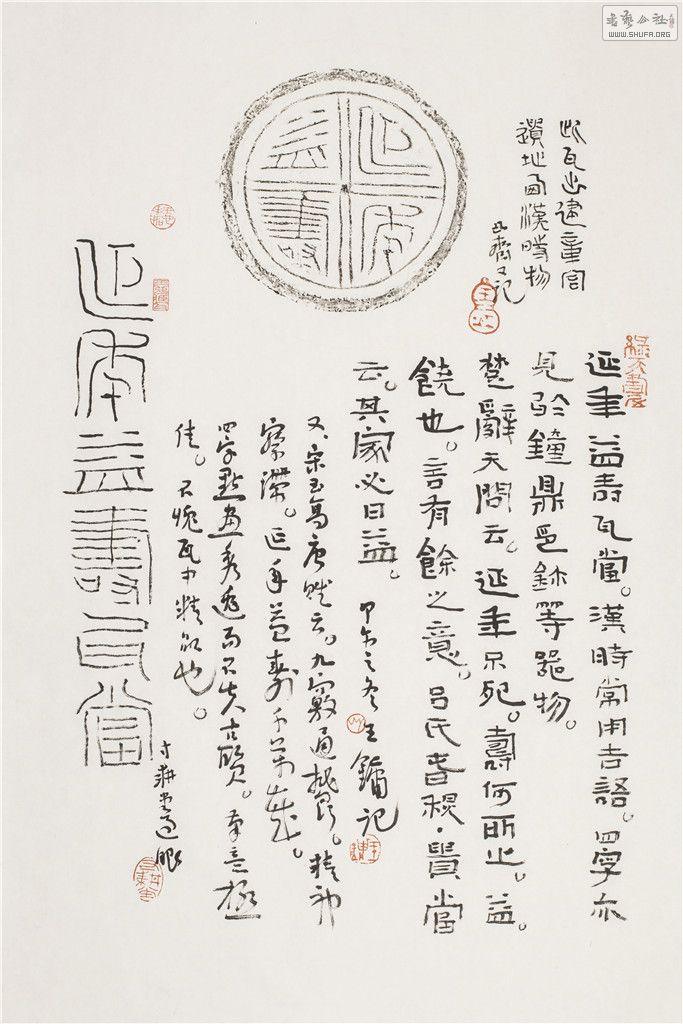 書藝公社
WWW.SHUFA.ORG
此瓦出建章宮
遺地為漢時物
又記
延年益壽瓦當。漢時常用吉語。四字亦
見於鐘鼎邑鉨等器物。
楚辭天問云。延年不死。壽何所止。益。
饒也。言有餘之意。呂氏春秋·貴當
云。其家必日益。
甲午之冬王鏞記
又。宋玉高唐賦云。九竅通鬱。精神
察滯。延年益壽千萬歲。
四字點畫秀逸而不失古質。布言極
佳。不愧瓦中精品也。
延年益壽瓦當
延年
益壽